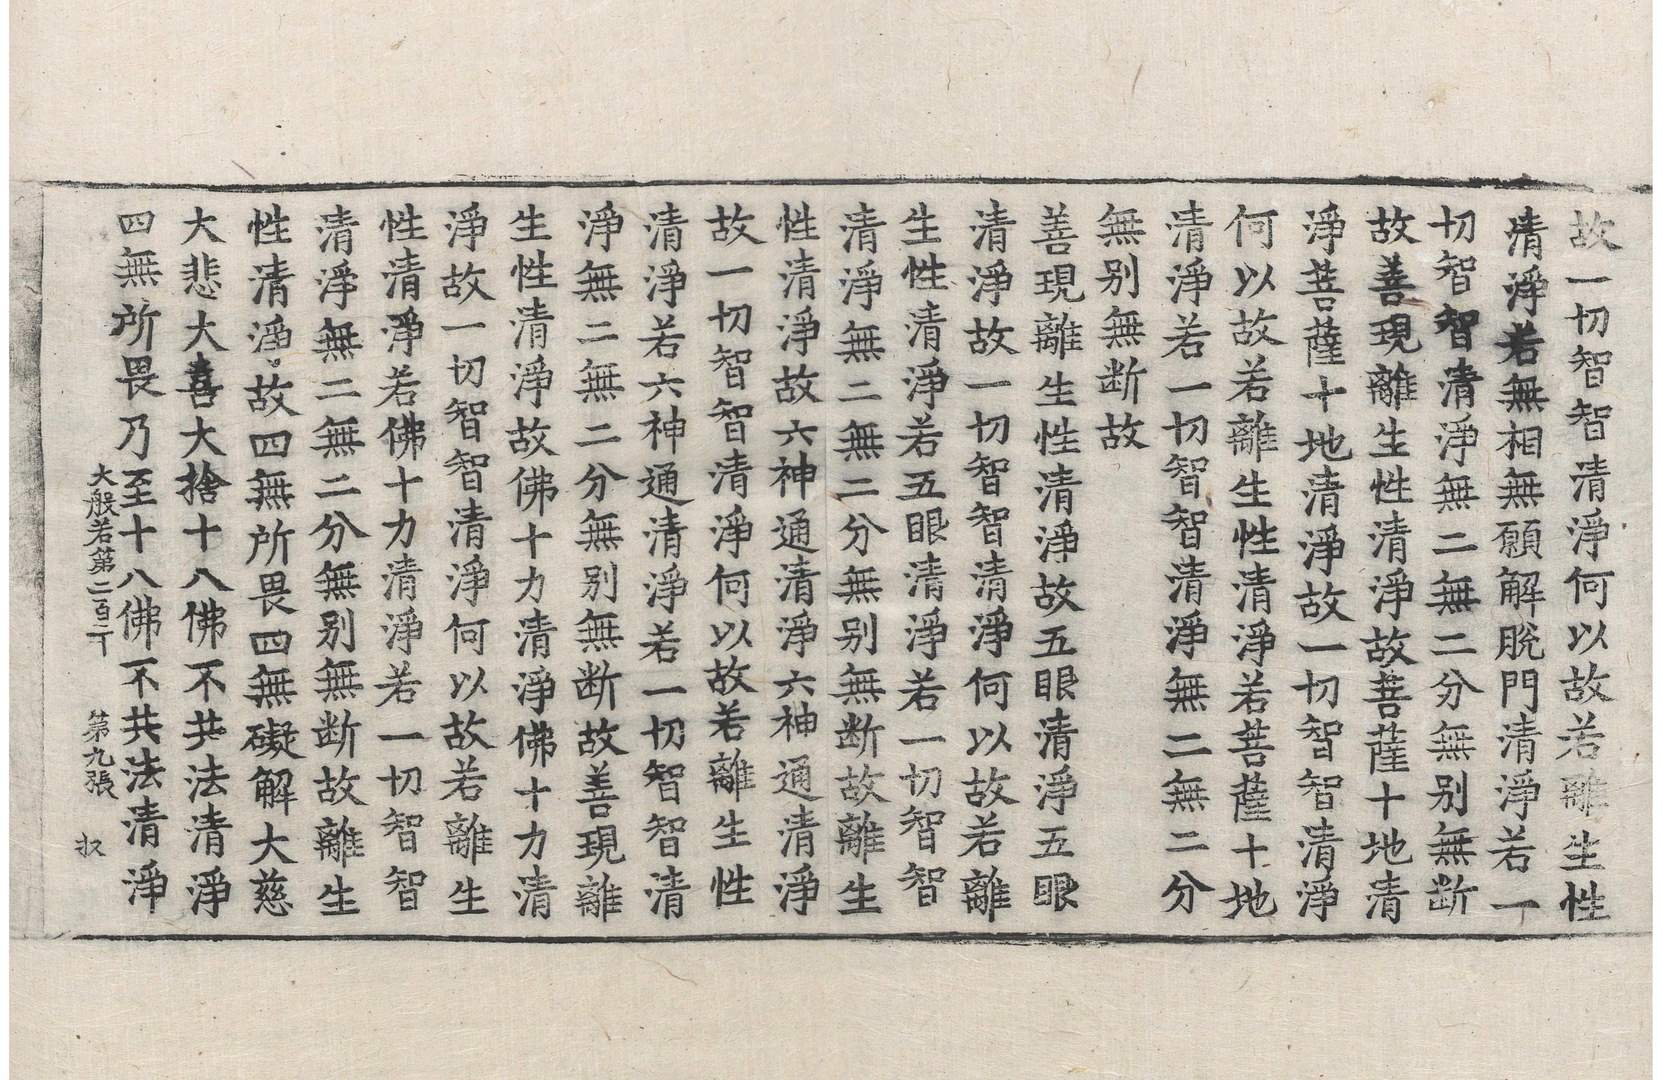 故一切智智清淨何以故若離生性
清淨若無相無願解脫門清淨若一
切智智清淨無二無二分無别無断
故善現離生性清淨故菩薩十地清
淨菩薩十地清淨故一切智智清淨
何以故若離生性清淨若菩薩十地
清淨若一切智智清淨無二無二分
無别無断故
善現離生性清淨故五眼清淨五眼
清淨故一切智智清淨何以故若離
生性清淨若五眼清淨若一切智智
清淨無二無二分無别無断故離生
性清淨故六神通清淨六神通清淨
故一切智智清淨何以故若離生性
清淨若六神通清淨若一切智智清
淨無二無二分無别無断故善現離
生性清淨故佛十力清淨佛十力清
淨故一切智智清淨何以故若離生
性清淨若佛十力清淨若一切智智
清淨無二無二分無别無断故離生
性清淨故四無所畏四無礙解大慈
大悲大喜大捨十八佛不共法清淨
四無所畏乃至十八佛不共法清淨
大般若第二百二 第九張